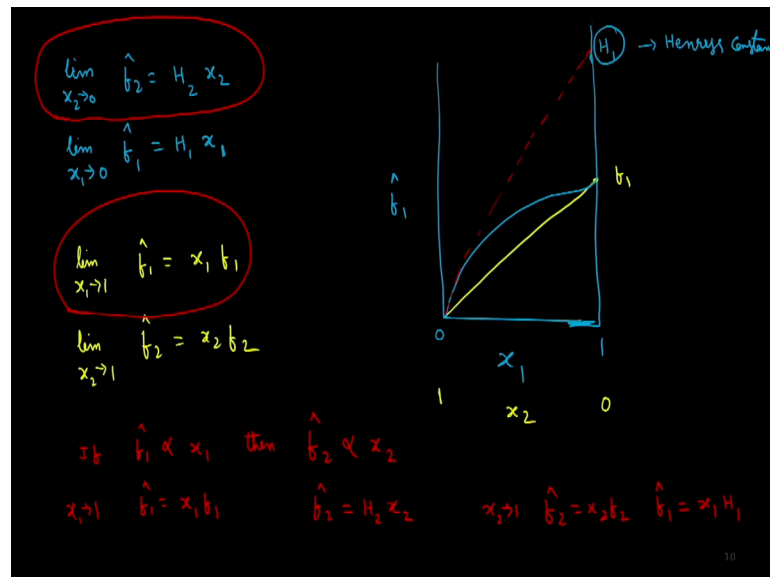 lim x₂→0 f̂₂ = H₂ x₂
lim x₁→0 f̂₁ = H₁ x₁
lim x₁→1 f̂₁ = x₁ f₁
lim x₂→1 f̂₂ = x₂ f₂
H₁ → Henrys Constan
f̂₁
f₁
0 1
x₁
1 x₂ 0
If f̂₁ ∝ x₁ then f̂₂ ∝ x₂
x₁→1 f̂₁ = x₁f₁ f̂₂ = H₂ x₂ x₂→1 f̂₂ = x₂f₂ f̂₁ = x₁ H₁
10